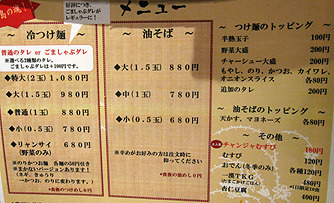 メニュー
好評につき、
ごましゃぶダレが
レギュラーに!
～ 冷つけ麺 ～
普通のタレ or ごましゃぶダレ
※選べる2種類のタレ。
ごましゃぶダレは+100円です。
◆特大(2玉) 1,080円
◆大(1.5玉) 980円
◆普通(1玉) 880円
◆小(0.5玉) 780円
◆リャンサイ 680円
(野菜のみ)
～ 油そば ～
◆大(1.5玉) 880円
◆中(1玉) 780円
◆小(0.5玉) 680円
※辛めがお好みの方は注文時に
仰ってください
～ つけ麺のトッピング ～
半熟玉子 100円
野菜大盛 200円
チャーシュー大盛 200円
もやし、のり、かつお、カイワレ、
オニオンスライス 各100円
追加のタレ 200円
～ 油そばのトッピング ～
天かす、マヨネーズ 各100円
～ その他 ～
チャンジャむすび 180円
むすび 120円
おでん(冬季のみ) 各120円
一漢TKG 480円
杏仁豆腐 400円